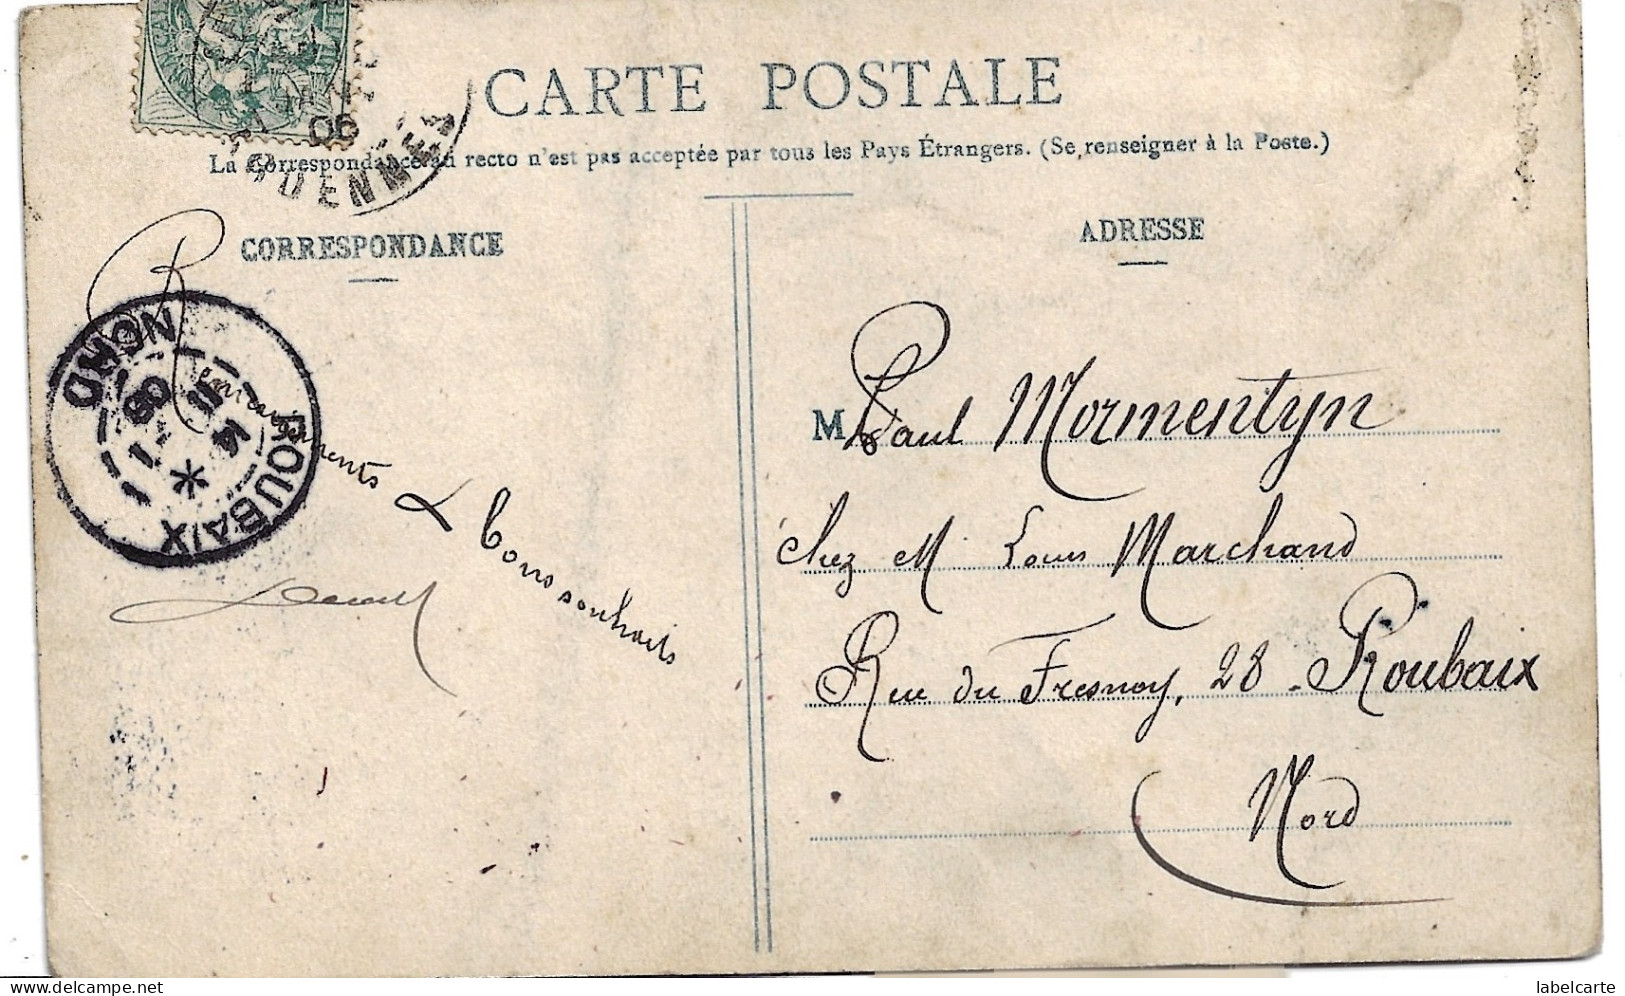 CARTE POSTALE
La Correspondance au recto n'est pas acceptée par tous les Pays Étrangers. (Se renseigner à la Poste.)
06
ARDENNES
CORRESPONDANCE
Remerciements & bons souhaits
ROUBAIX
NORD
14
11
06
ADRESSE
M Paul Mormentyn
chez M Louis Marchand
Rue du Fresnoy, 28 - Roubaix
Nord
delcampe.net
labelcarte